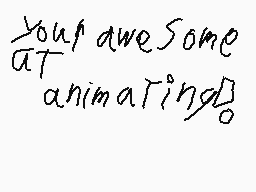 Your awesome
at
animating!